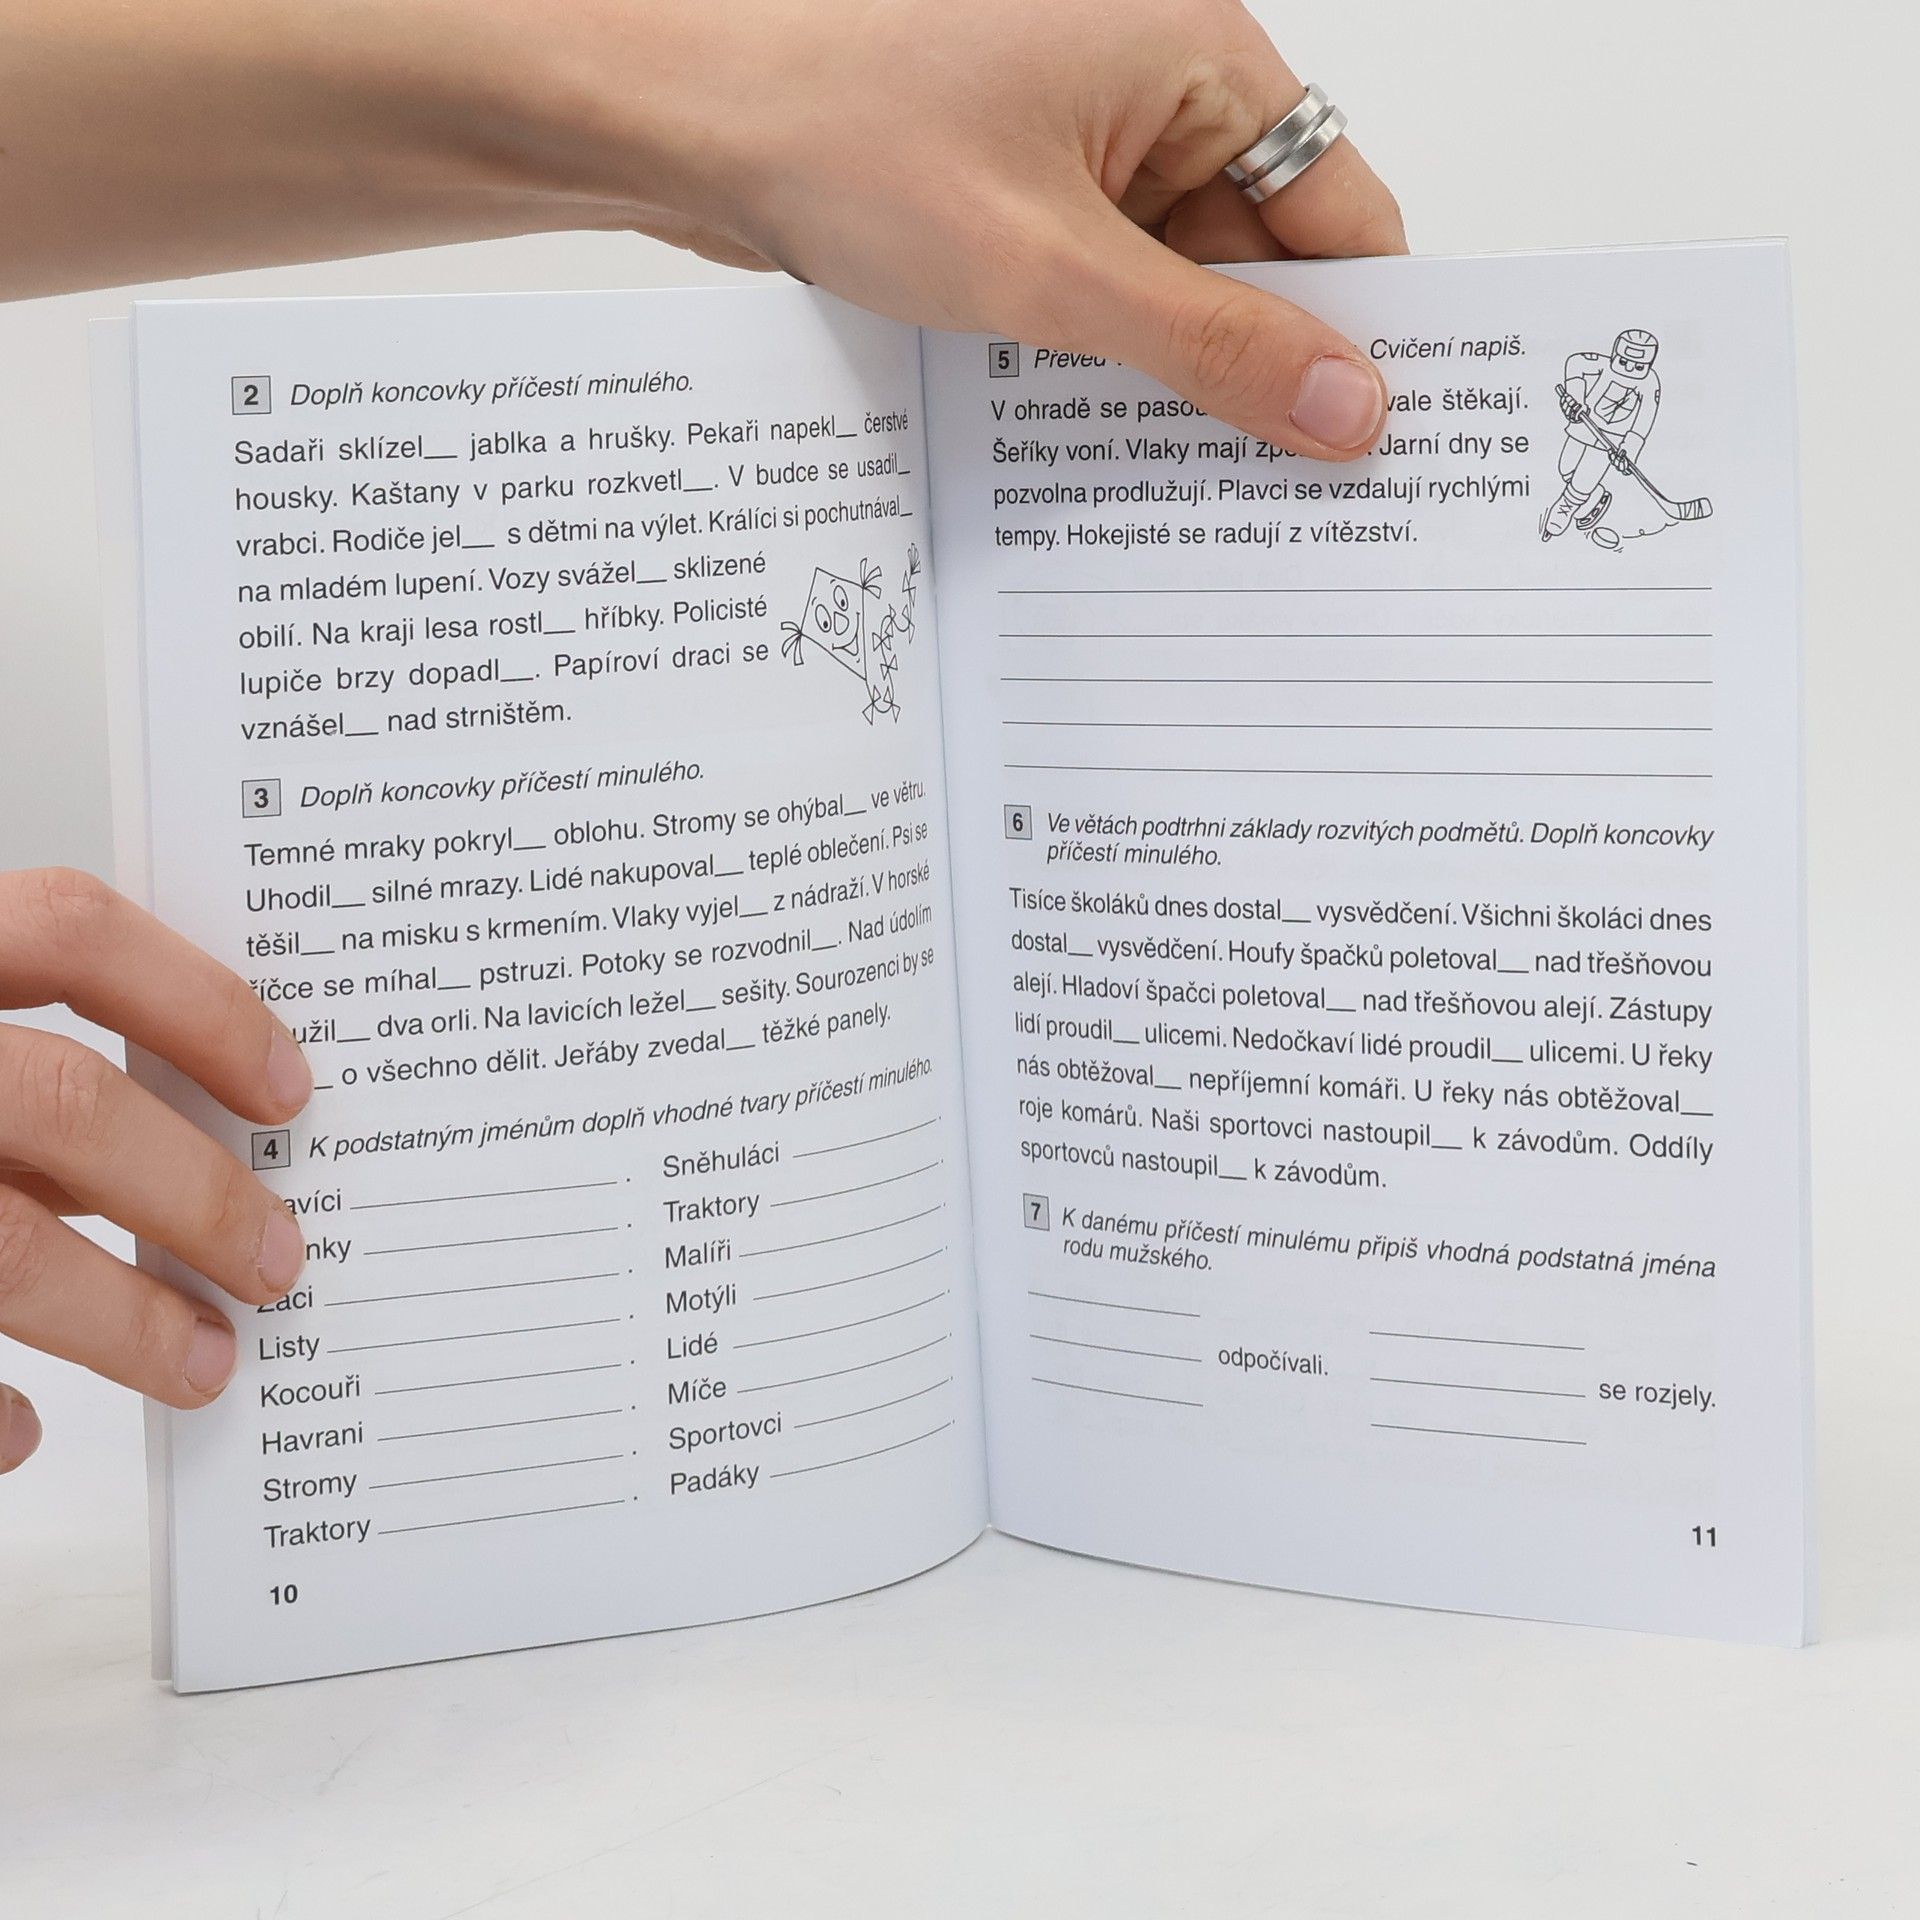 2 Doplň koncovky příčestí minulého.
Sadaři sklízel__ jablka a hrušky. Pekaři napekl__ čerstvé
housky. Kaštany v parku rozkvetl__. V budce se usadil_
vrabci. Rodiče jel__ s dětmi na výlet. Králíci si pochutnával_
na mladém lupení. Vozy svážel__ sklizené
obilí. Na kraji lesa rostl__ hříbky. Policisté
lupiče brzy dopadl__. Papíroví draci se
vznášel__ nad strništěm.
3 Doplň koncovky příčestí minulého.
Temné mraky pokryl__ oblohu. Stromy se ohýbal__ ve větru.
Uhodil__ silné mrazy. Lidé nakupoval__ teplé oblečení. Psi se
těšil__ na misku s krmením. Vlaky vyjel__ z nádraží. V horské
říčce se míhal__ pstruzi. Potoky se rozvodnil__. Nad údolím
užil__ dva orli. Na lavicích ležel__ sešity. Sourozenci by se
__ o všechno dělit. Jeřáby zvedal__ těžké panely.
4 K podstatným jménům doplň vhodné tvary příčestí minulého.
avíci ____.
nky ____.
Žáci ____.
Listy ____.
Kocouři ____.
Havrani ____.
Stromy ____.
Traktory ____.
Sněhuláci ____.
Traktory ____.
Malíři ____.
Motýli ____.
Lidé ____.
Míče ____.
Sportovci ____.
Padáky ____.
10
5 Cvičení napiš.
V ohradě se štěkají.
Šeříky voní. Vlaky mají Jarní dny se
pozvolna prodlužují. Plavci se vzdalují rychlými
tempy. Hokejisté se radují z vítězství.
6 Ve větách podtrhni základy rozvitých podmětů. Doplň koncovky
příčestí minulého.
Tisíce školáků dnes dostal__ vysvědčení. Všichni školáci dnes
dostal__ vysvědčení. Houfy špačků poletoval__ nad třešňovou
alejí. Hladoví špačci poletoval__ nad třešňovou alejí. Zástupy
lidí proudil__ ulicemi. Nedočkaví lidé proudil__ ulicemi. U řeky
nás obtěžoval__ nepříjemní komáři. U řeky nás obtěžoval__
roje komárů. Naši sportovci nastoupil__ k závodům. Oddíly
sportovců nastoupil__ k závodům.
7 K danému příčestí minulému připiš vhodná podstatná jména
rodu mužského.
odpočívali.
se rozjely.
11